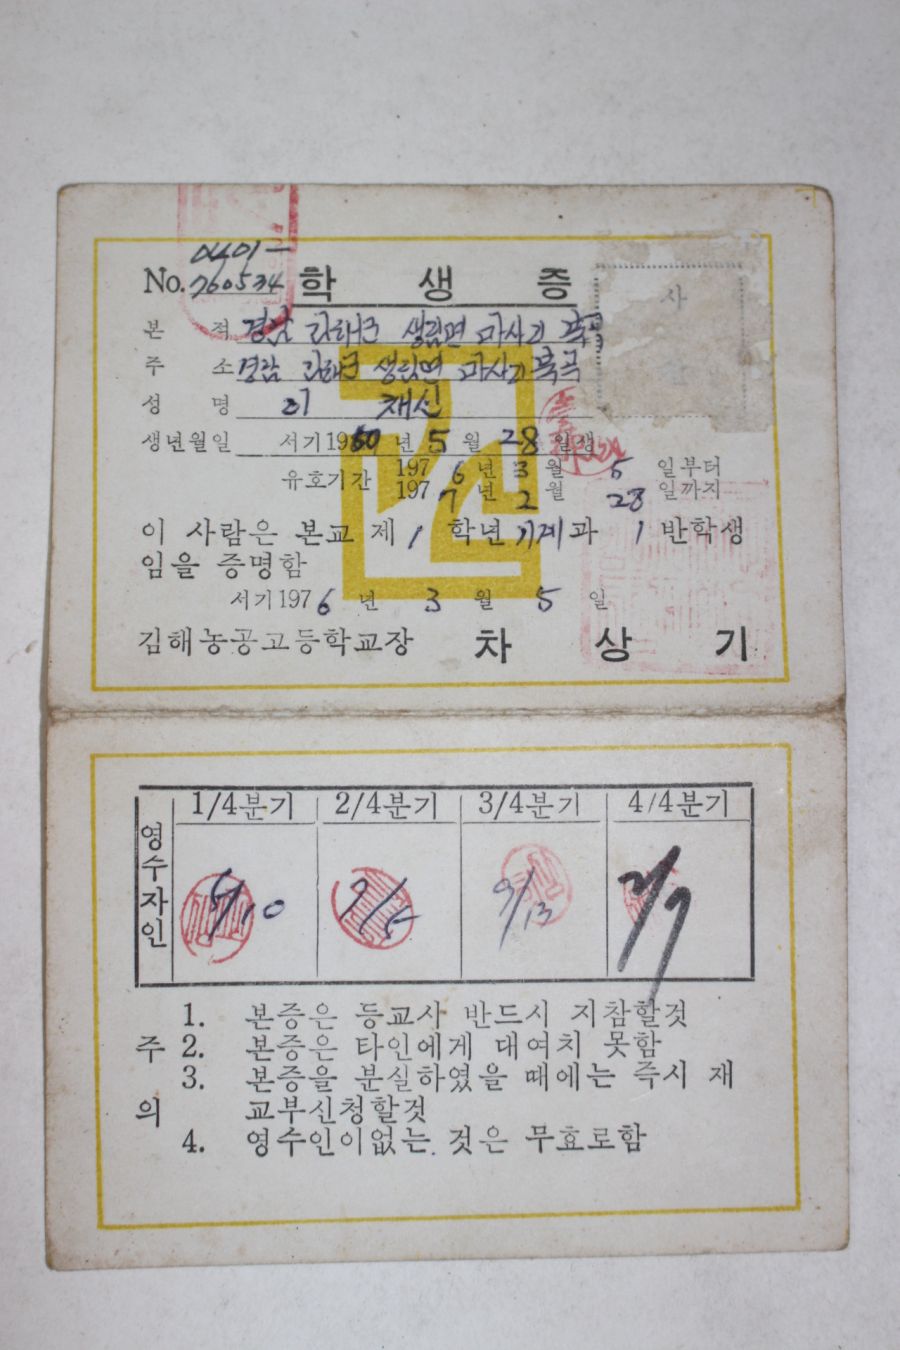 No. 760534 학 생 증
본 적 경남 김해군 생림면 마사리 북곡
주 소 경남 김해군 생림면 마사리 북곡
성 명 이 재신
생년월일 서기 1960 년 5 월 28 일생
유효기간 197 6 년 3 월 5 일부터
197 7 년 2 월 28 일까지
이 사람은 본교 제 1 학년 기계과 1 반학생
임을 증명함
서기 197 6 년 3 월 5 일
김해농공고등학교장 차 상 기
1/4분기 2/4분기 3/4분기 4/4분기
영수자인 5/10 7/5 9/13 2/7
주의
1. 본증은 등교사 반드시 지참할것
2. 본증은 타인에게 대여치 못함
3. 본증을 분실하였을 때에는 즉시 재
교부신청할것
4. 영수인이없는 것은 무효로함